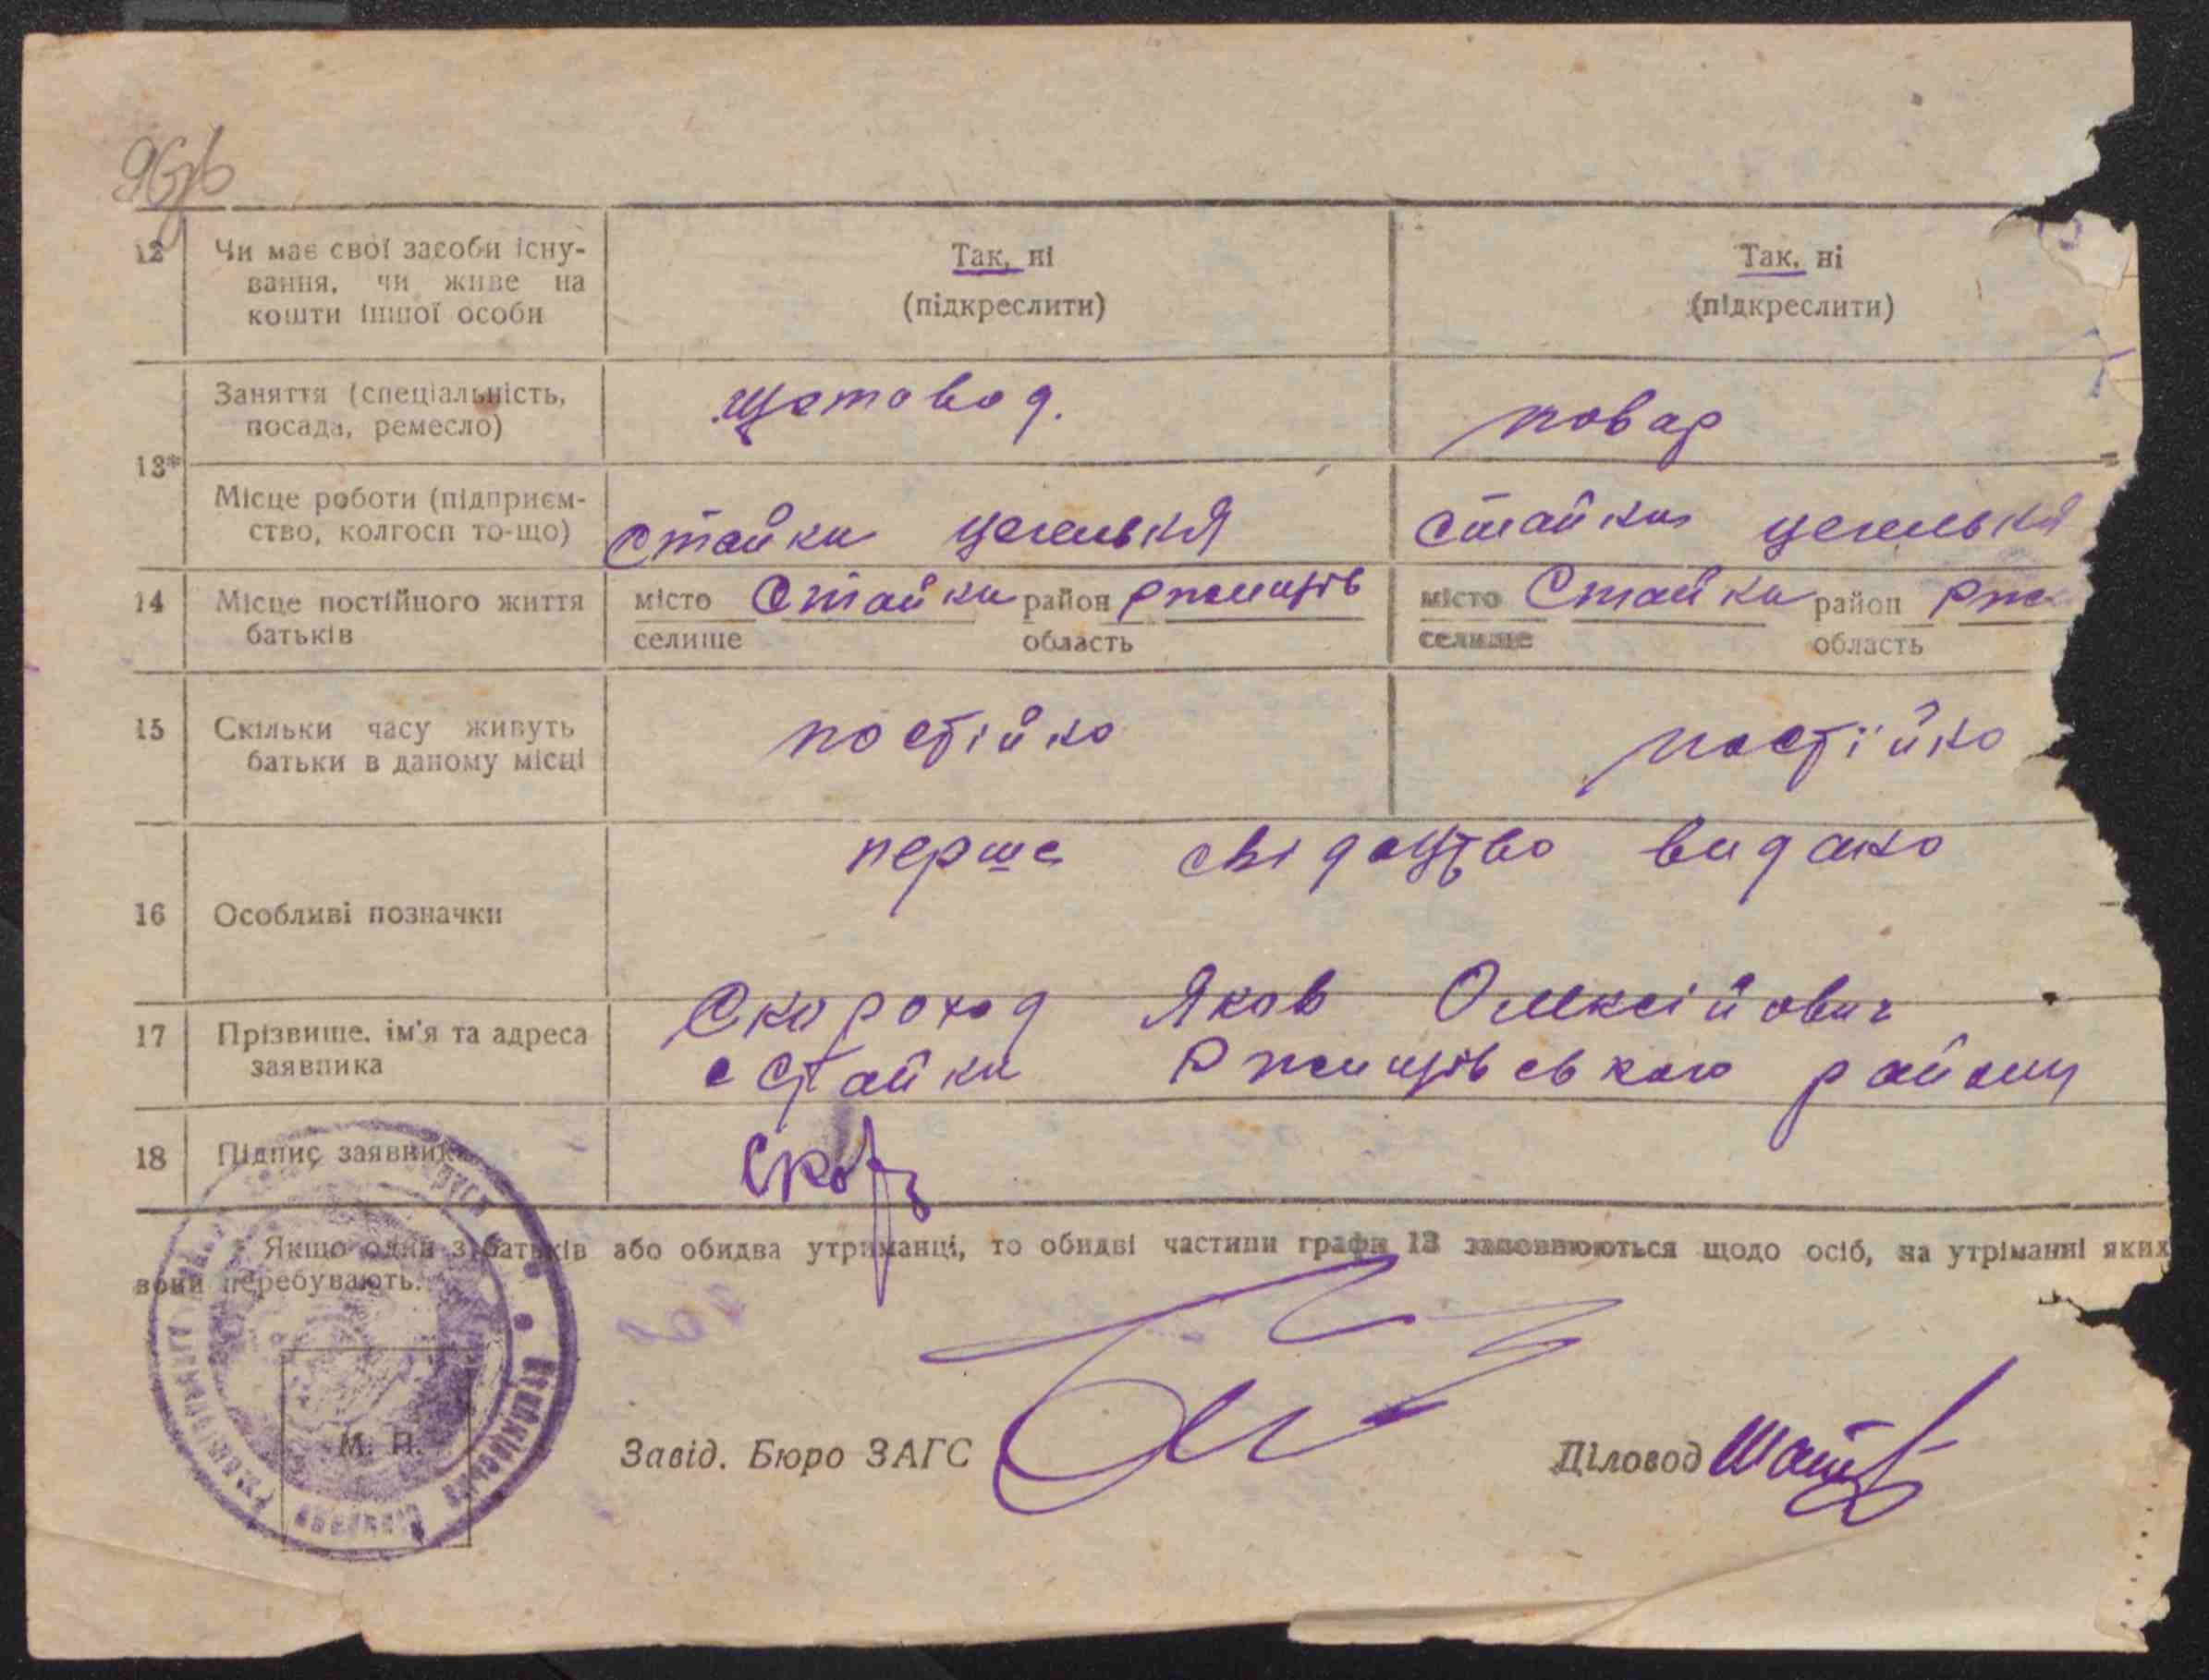 12 Чи має свої засоби існу- Так, ні Так, ні
вання, чи живе на (підкреслити) (підкреслити)
кошти іншої особи
Заняття (спеціальність, щотовод. повар
посада, ремесло)
13*
Місце роботи (підприєм- Стайки цегельня Стайки цегельня
ство, колгосп то-що)
14 Місце постійного життя місто Стайки район Ржищів місто Стайки район Рж
батьків селище область селище область
15 Скільки часу живуть постійно постійно
батьки в даному місці
перше свідоцтво видано
16 Особливі позначки
17 Прізвище, ім'я та адреса Скороход Яков Олексійович
заявника с Стайки Ржищівського району
18 Підпис заявника Скор
* Якщо один з батьків або обидва утриманці, то обидві частини графи 13 заповнюються щодо осіб, на утріманні яких
вони перебувають.
М. П.
Завід. Бюро ЗАГС Діловод